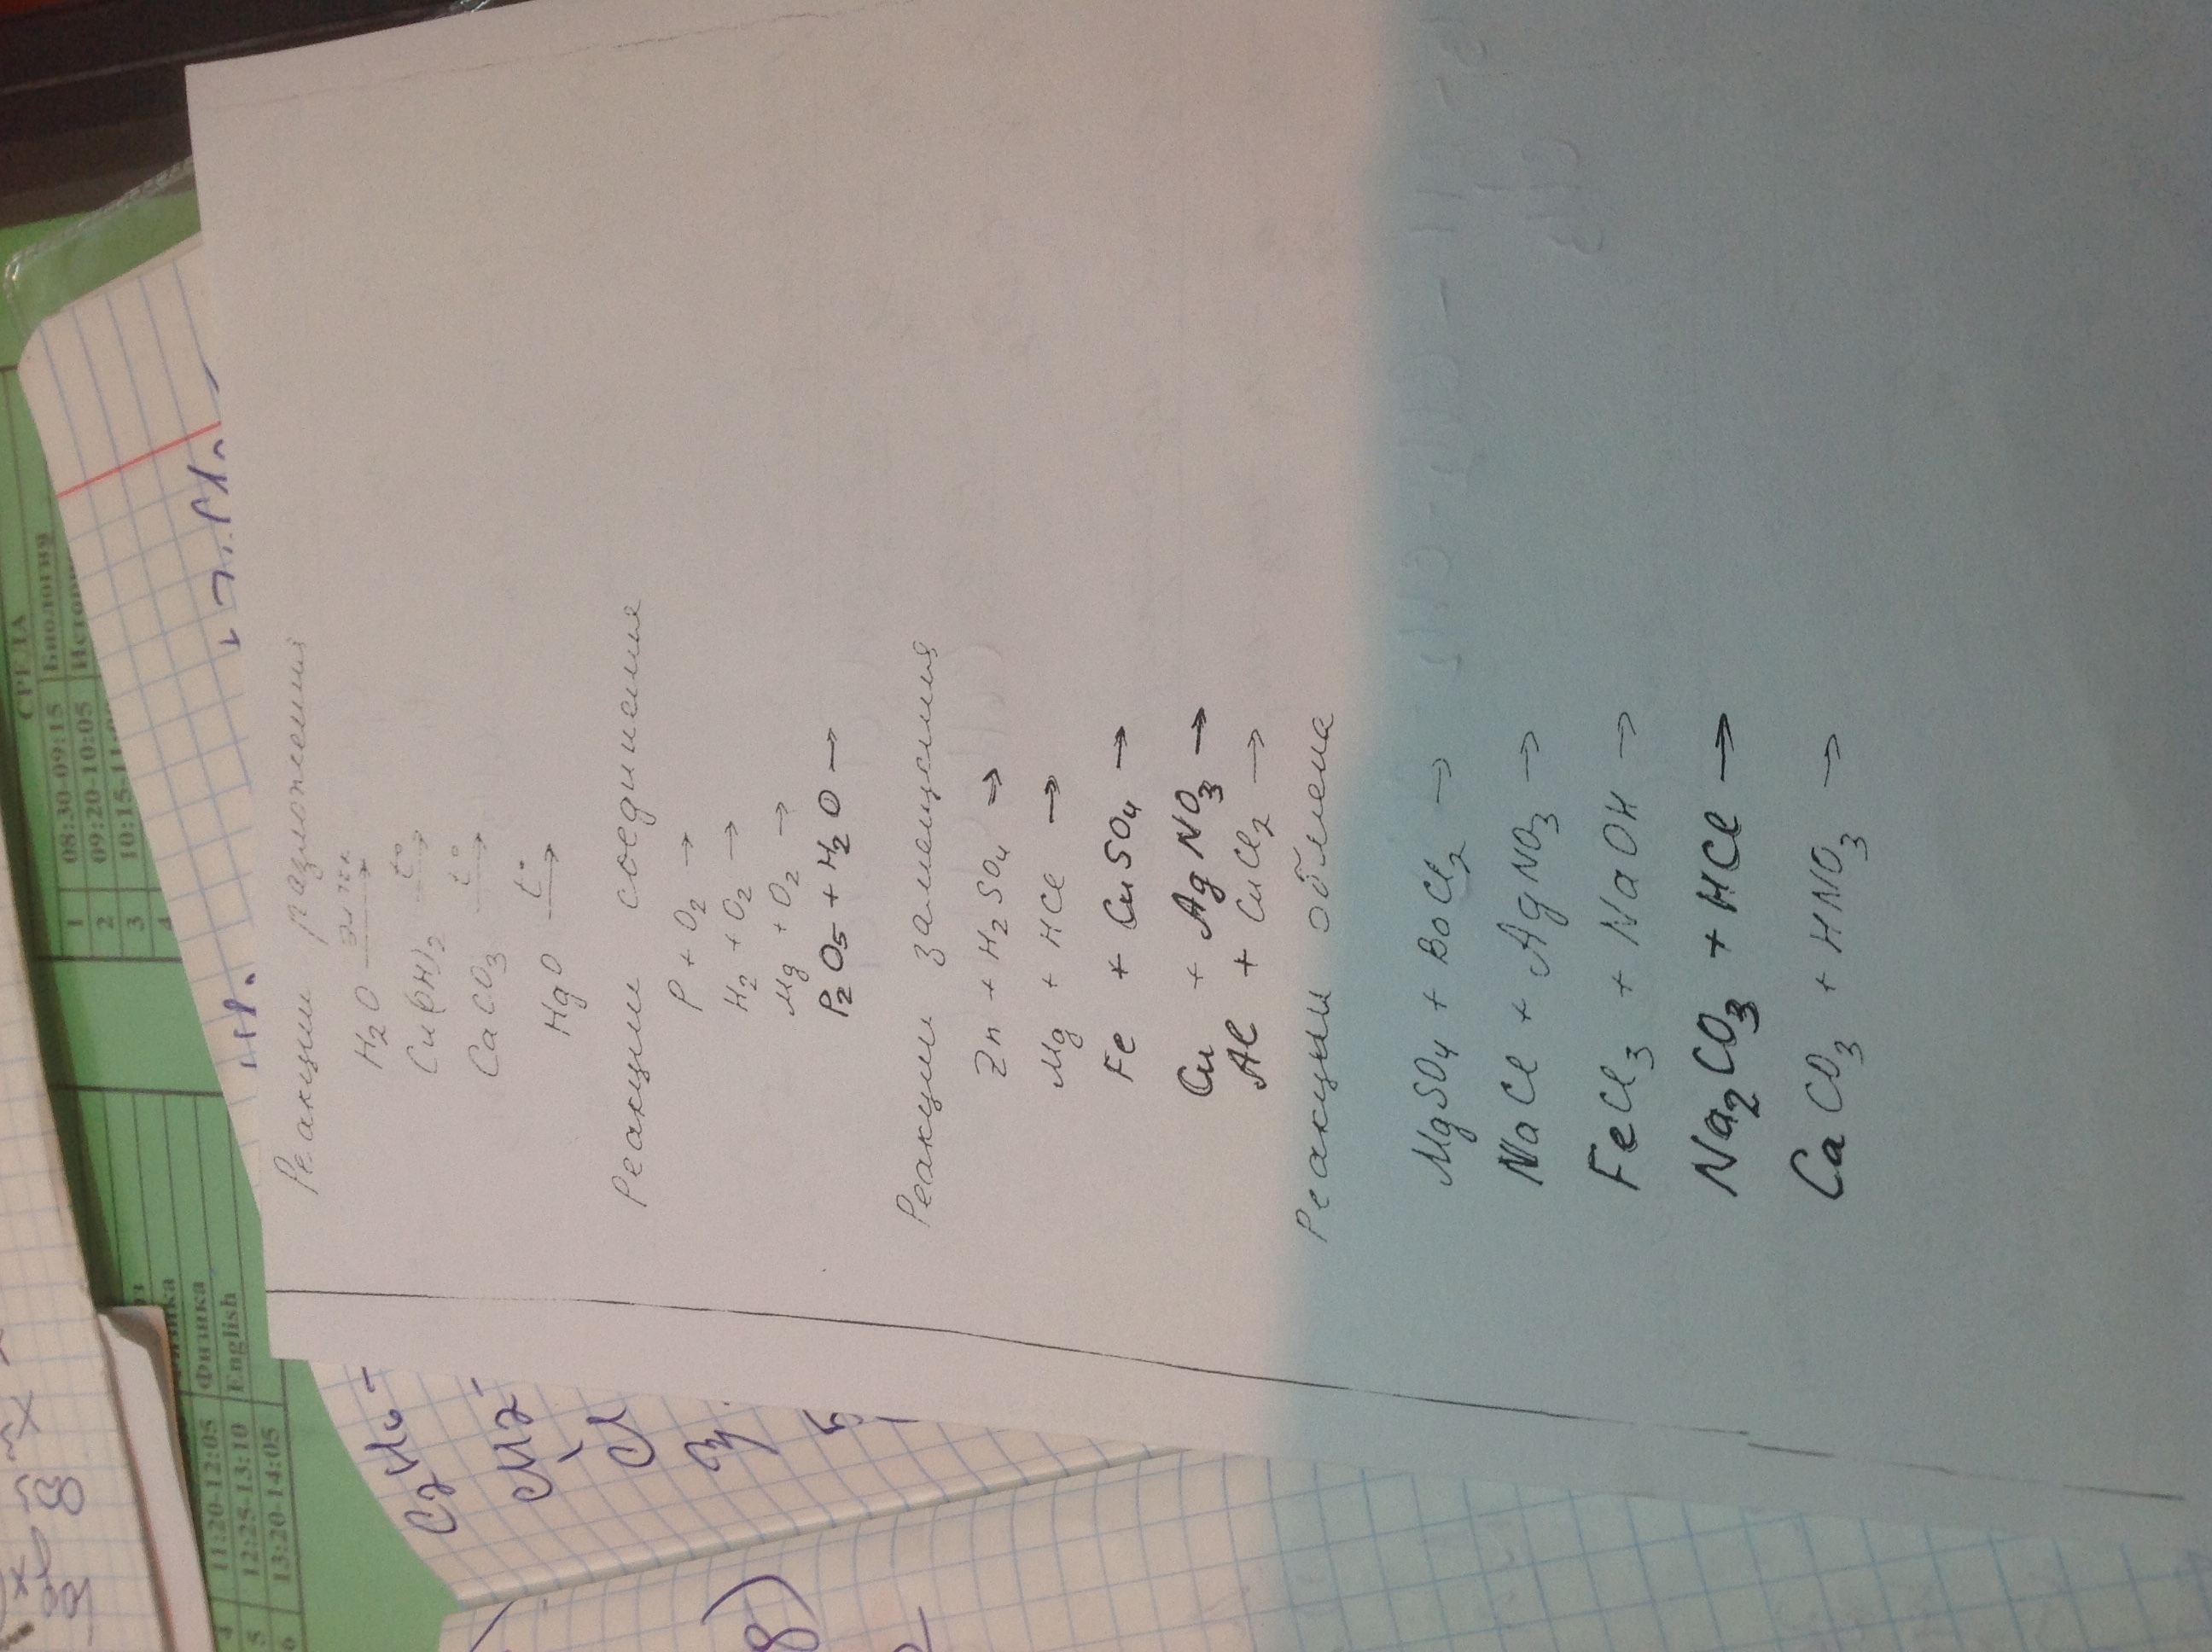 Реакции разложения
H₂O эл. ток →
Cu(OH)₂ t° →
CaCO₃ t° →
HgO t° →
Реакции соединения
P + O₂ →
H₂ + O₂ →
Mg + O₂ →
P₂O₅ + H₂O →
Реакции замещения
Zn + H₂SO₄ →
Mg + HCl →
Fe + CuSO₄ →
Cu + AgNO₃ →
Al + CuCl₂ →
Реакции обмена
MgSO₄ + BaCl₂ →
NaCl + AgNO₃ →
FeCl₃ + NaOH →
Na₂CO₃ + HCl →
CaCO₃ + HNO₃ →
СРЕДА
1 08:30-09:15 Биология
2 09:20-10:05
3
4
4 11:20-12:05
5 12:25-13:10 Физика
6 13:20-14:05 English